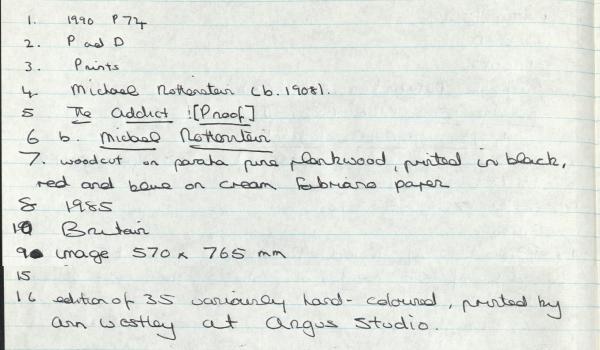 1. 1990 P 74
2. P and D
3. Prints
4. Michael Rothenstein (b. 1908).
5 The Addict : [Proof]
6 b. Michael Rothenstein
7. woodcut on parana pine plankwood, printed in black,
red and blue on cream Fabriano paper
8 1985
10 Britain
9 image 570 x 765 mm
15
16 edition of 35 variously hand-coloured, printed by
Ann Westley at Argus Studio.